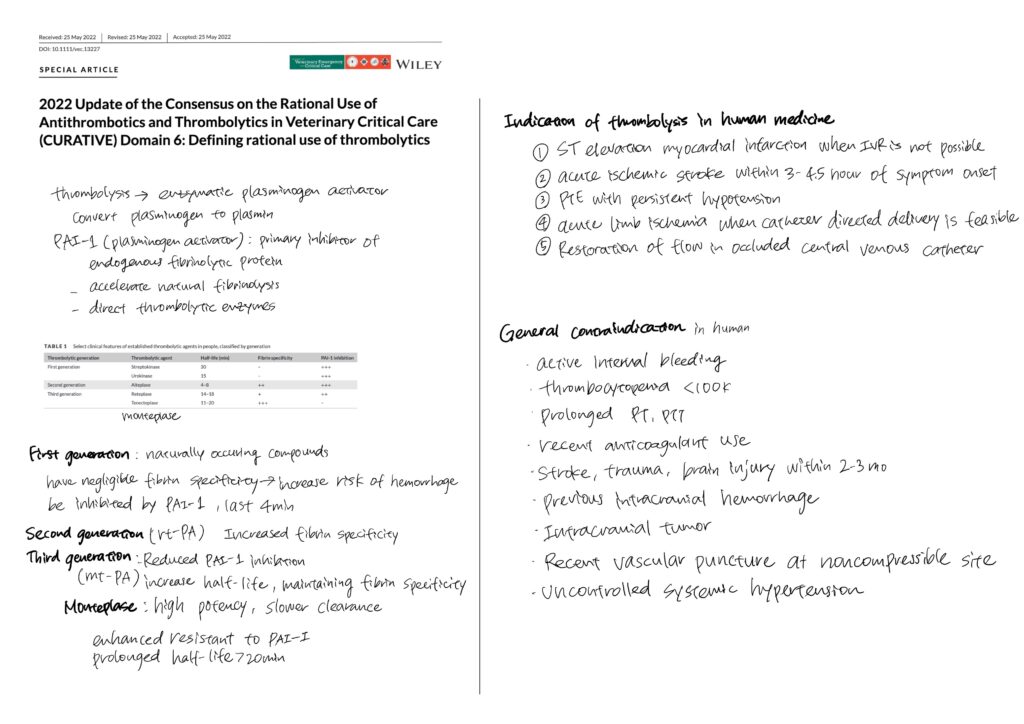 Received: 25 May 2022 | Revised: 25 May 2022 | Accepted: 25 May 2022
DOI: 10.1111/vec.13227
SPECIAL ARTICLE
Veterinary Emergency
Critical Care
WILEY
2022 Update of the Consensus on the Rational Use of
Antithrombotics and Thrombolytics in Veterinary Critical Care
(CURATIVE) Domain 6: Defining rational use of thrombolytics
thrombolysis → enzymatic plasminogen activator
convert plasminogen to plasmin
PAI-1 (plasminogen activator) : primary inhibitor of
endogenous fibrinolytic protein
- accelerate natural fibrinolysis
- direct thrombolytic enzymes
TABLE 1 Select clinical features of established thrombolytic agents in people, classified by generation
Thrombolytic generation Thrombolytic agent Half-life (min) Fibrin specificity PAI-1 inhibition
First generation Streptokinase 30 - +++
Urokinase 15 - +++
Second generation Alteplase 4–8 ++ +++
Third generation Reteplase 14–18 + ++
Tenecteplase 11–20 +++ -
Monteplase
First generation : naturally occuring compounds
have negligible fibrin specificity → increase risk of hemorrhage
be inhibited by PAI-1, last 4min
Second generation (rt-PA) Increased fibrin specificity
Third generation : Reduced PAI-1 inhibition
(mt-PA) increase half-life, maintaining fibrin specificity
Monteplase : high potency, slower clearance
enhanced resistant to PAI-I
prolonged half-life >20min
Indication of thrombolysis in human medicine
① ST elevation myocardial infarction when IVR is not possible
② acute ischemic stroke within 3-4.5 hour of symptom onset
③ PTE with persistent hypotension
④ acute limb ischemia when catheter directed delivery is feasible
⑤ Restoration of flow in occluded central venous catheter
General contraindication in human
· active internal bleeding
· thrombocytopenia <100K
· prolonged PT, PTT
· recent anticoagulant use
· Stroke, trauma, brain injury within 2-3 mo
· Previous intracranial hemorrhage
· Intracranial tumor
· Recent vascular puncture at noncompressible site
· uncontrolled systemic hypertension